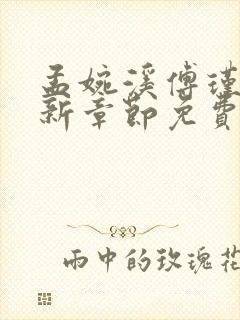 孟婉溪傅瑾
新章节免费
雨中的玫瑰花